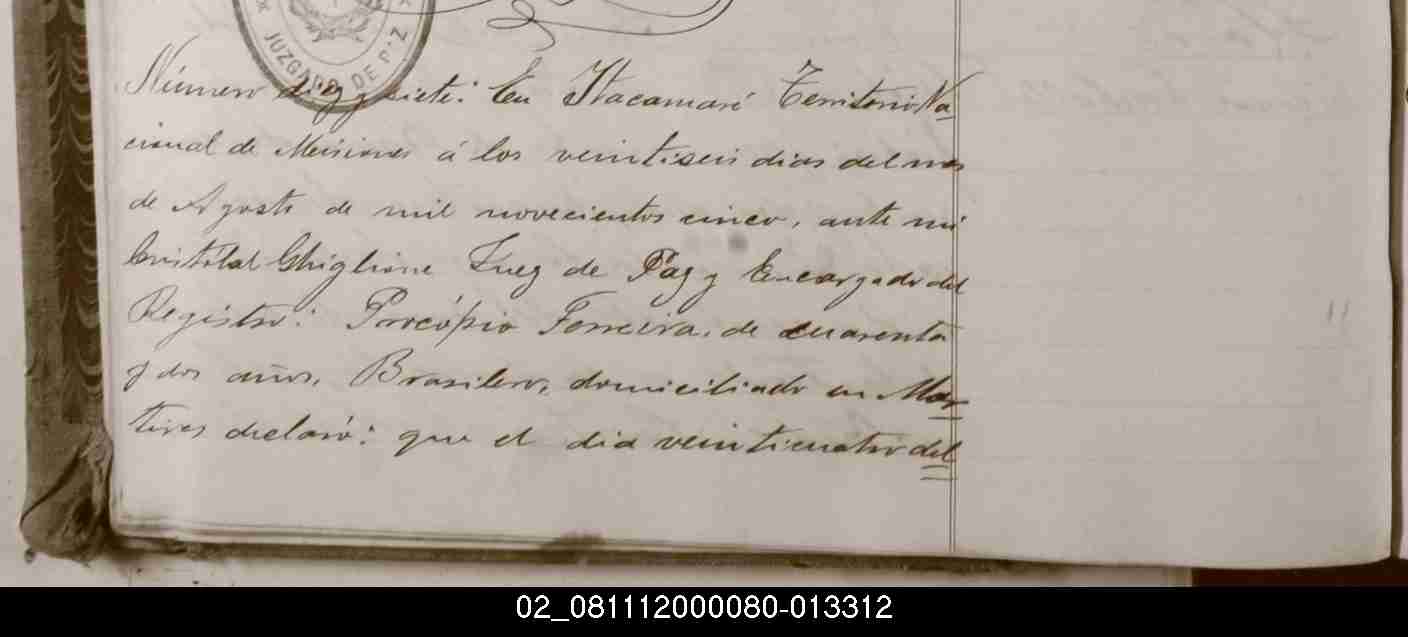 JUZGADO DE PAZ
Número diez y siete: En Itacamaré Territorio Na
cional de Misiones á los veintiseis dias del mes
de Agosto de mil novecientos cinco, ante mi
Cristóbal Ghiglione Juez de Paz y Encargado del
Registro: Procópio Ferreira, de cuarenta
y dos años, Brasilero, domiciliado en Mar
tires declaró: que el dia veinticuatro del
02_081112000080-013312